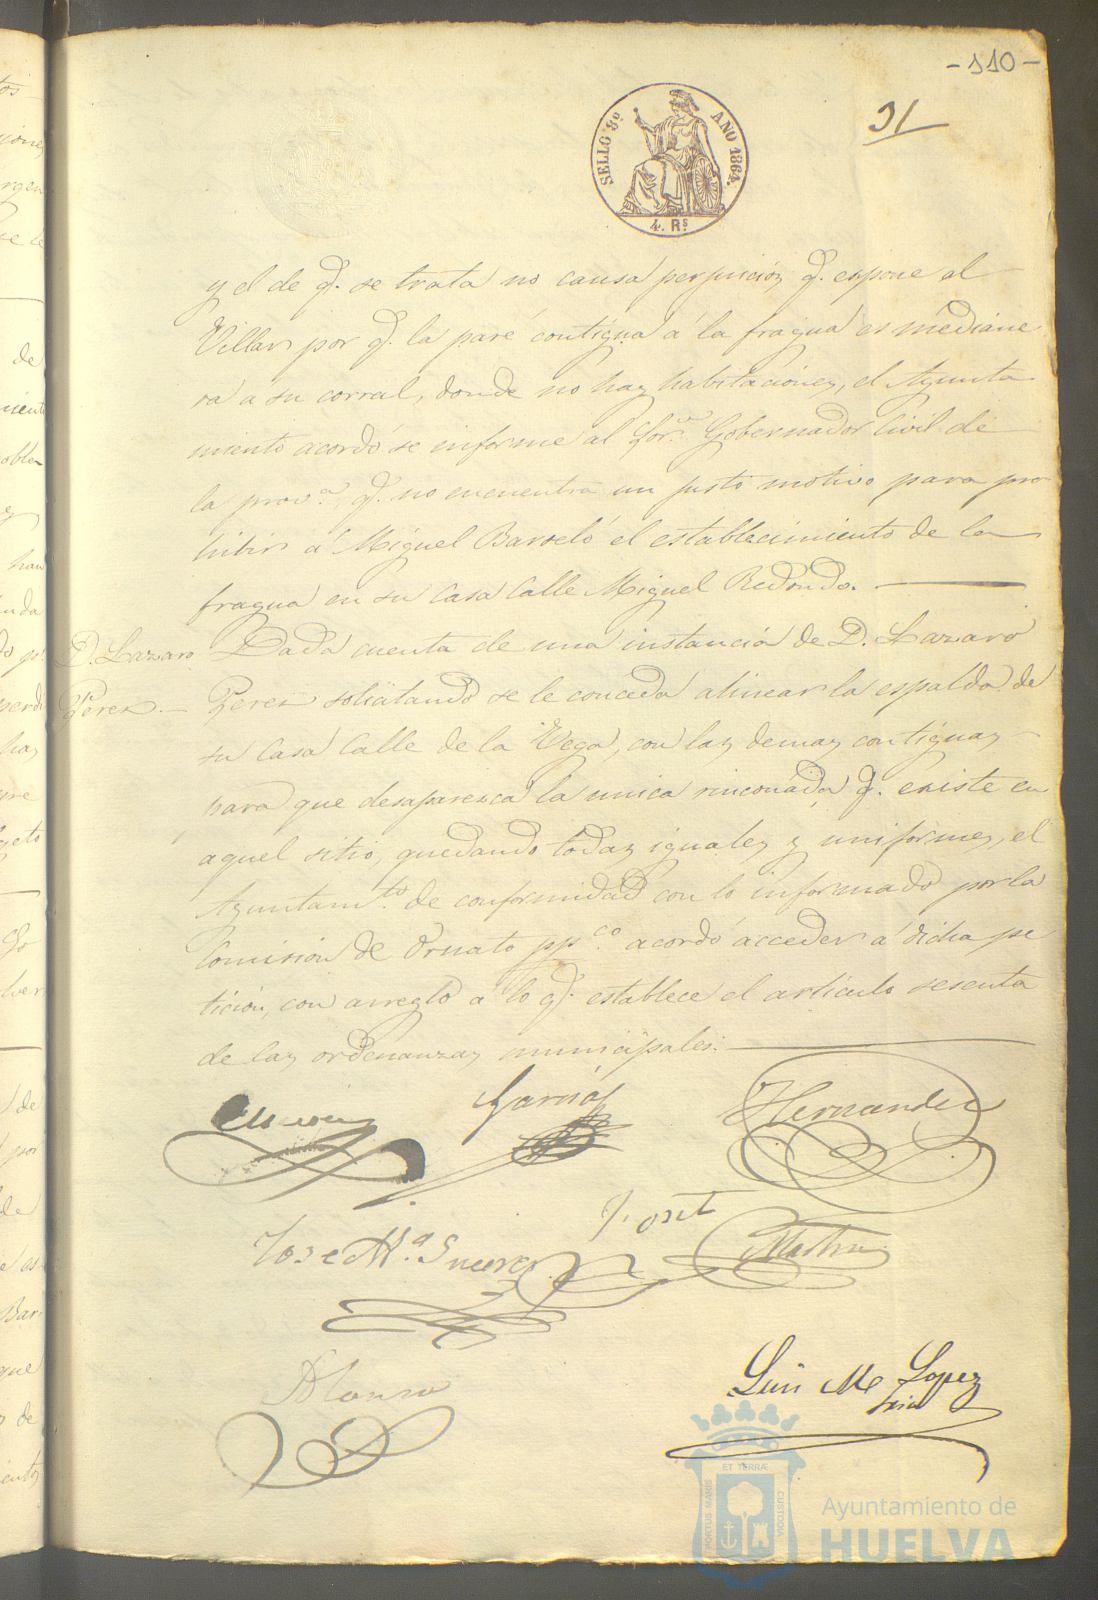 -110-
31
SELLO 8º AÑO 1864.
4. Rs
y el de q. se trata no causa perjuicio, q. espone el
Villar por q. la pare contigua á la fragua es mediane
ra á su corral, donde no hay habitaciones, el Ayunta
miento acordó se informe al Sor. Gobernador Civil de
la prova. q. no encuentra un justo motivo para pro
hibir á Miguel Barceló el establecimiento de la
fragua en su Casa Calle Miguel Redondo.
D. Lazaro
Perez.
Dada cuenta de una instancia de D. Lazaro
Perez solicitando se le conceda alinear la espalda de
su Casa Calle de la Vega, con las demas contiguas
para que desaparezca la unica rinconada q. existe en
aquel sitio, quedando todas iguales y uniformes, el
Ayuntamto. de conformidad con lo informado por la
Comision de Ornato ppco. acordó acceder á dicha pe
ticion, con arreglo á lo q. establece el articulo sesenta
de las ordenanzas municipales.
Garcia
Hernandez
Jose Ma. Suero
Alonso
Luis M Lopez
Srio
ET TERRÆ
PORTUS MARIS
CUSTODIA
Ayuntamiento de
HUELVA